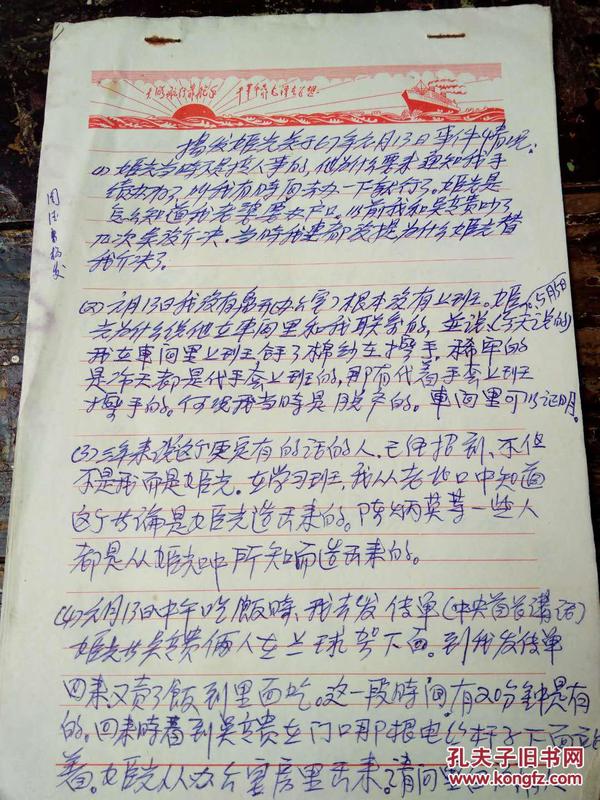 大海航行靠舵手 干革命靠毛泽东思想
揭发姬光关于67年元月13日事件情况:
(1)姬光当時又是找人事的,他为什么要来通知我手
续办了,叫我有時间去办一下就行了。姬光是
怎么知道我老婆要农户口。以前我和吴贵
几次未没介决。当時我想都没想为什么姬光替
我介决了。
(2)元月13日我没有离开办公室,根本没有上班。姬
5月5日
光为什么说他在車间里和我联系的,並说(今天说的)
我在車间里上班拿了棉纱在擦手,稀罕的
是冷天都是代手套上班的,那有代着手套上班
擦手的。何况我当時是脱产的。車间里可以证明。
(3)三年来说这个更实有的话的人,已经招到、不但
不是我而是姬光。在学习班,我从老 口中知道
这个 论是姬光造出来的。陈炳英等一些人
都是从姬光口中所知而造出来的。
(4)元月13日中午吃飯時,我去发传单(中央首长講话)
姬光与吴贵俩人在兰球架下面。到我发传单
回来又卖了飯到里面吃。这一段時间有20分钟是有
的。回来時看到吴贵在门口那根电 杆子下面站
着。姬光从办公室房里出来。请问
周 揭发
孔夫子旧书网
www.kongfz.com